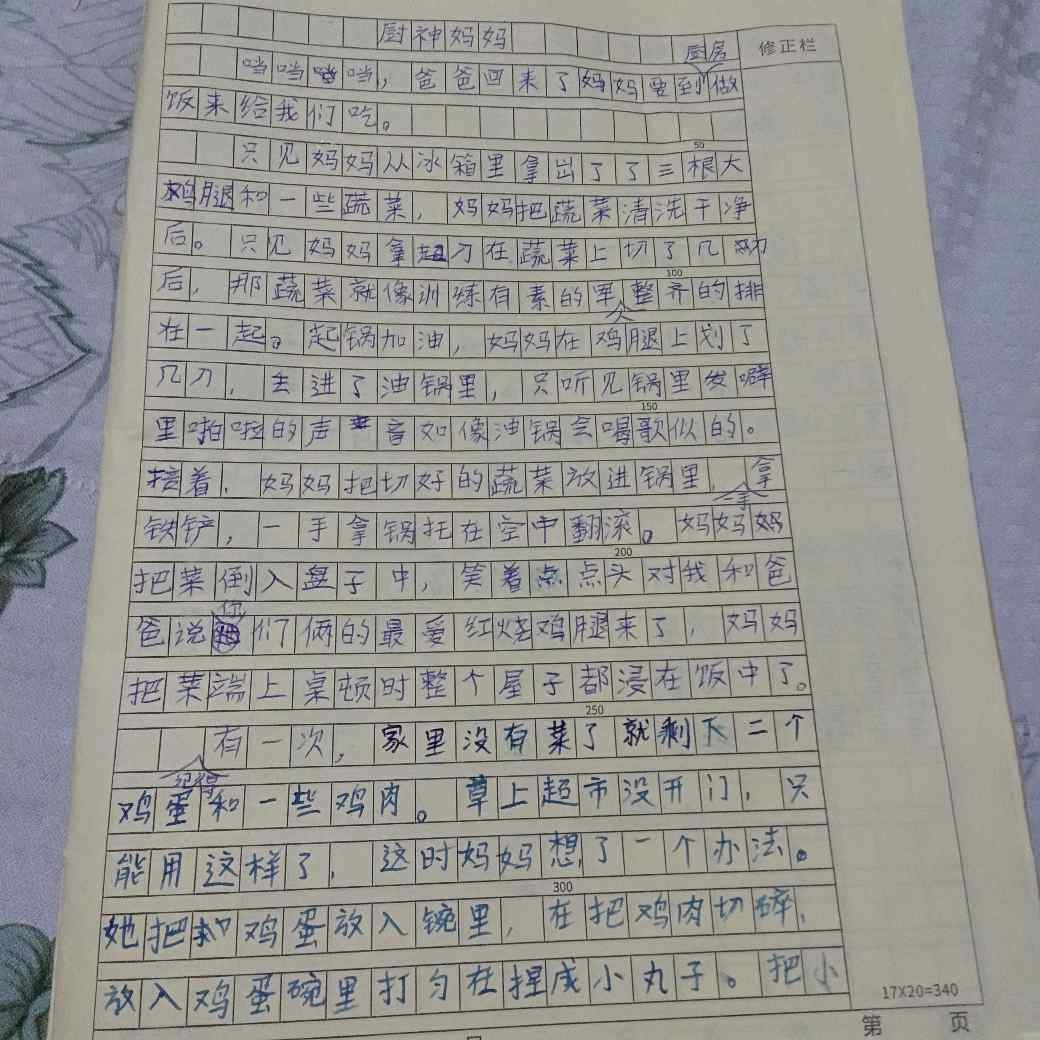 厨神妈妈
修正栏
厨房
当当当当，爸爸回来了妈妈要到做
饭来给我们吃。
50
只见妈妈从冰箱里拿出了了三根大
鸡腿和一些蔬菜，妈妈把蔬菜清洗干净
后。只见妈妈拿起刀在蔬菜上切了几
100
后，那蔬菜就像训练有素的军整齐的排
人
在一起。起锅加油，妈妈在鸡腿上划了
几刀，丢进了油锅里，只听见锅里发噼
150
里啪啦的声音如像油锅会唱歌似的。
接着，妈妈把切好的蔬菜放进锅里，拿
一手
铁铲，一手拿锅托在空中翻滚。妈妈妈
200
把菜倒入盘子中，笑着点点头对我和爸
你
爸说们俩的最爱红烧鸡腿来了，妈妈
把菜端上桌顿时整个屋子都浸在饭中了。
250
有一次，家里没有菜了就剩下二个
记得
鸡蛋和一些鸡肉。草上超市没开门，只
能用这样了，这时妈妈想了一个办法。
300
她把和鸡蛋放入碗里，在把鸡肉切碎，
放入鸡蛋碗里打匀在捏成小丸子。把小
17X20=340
第 页